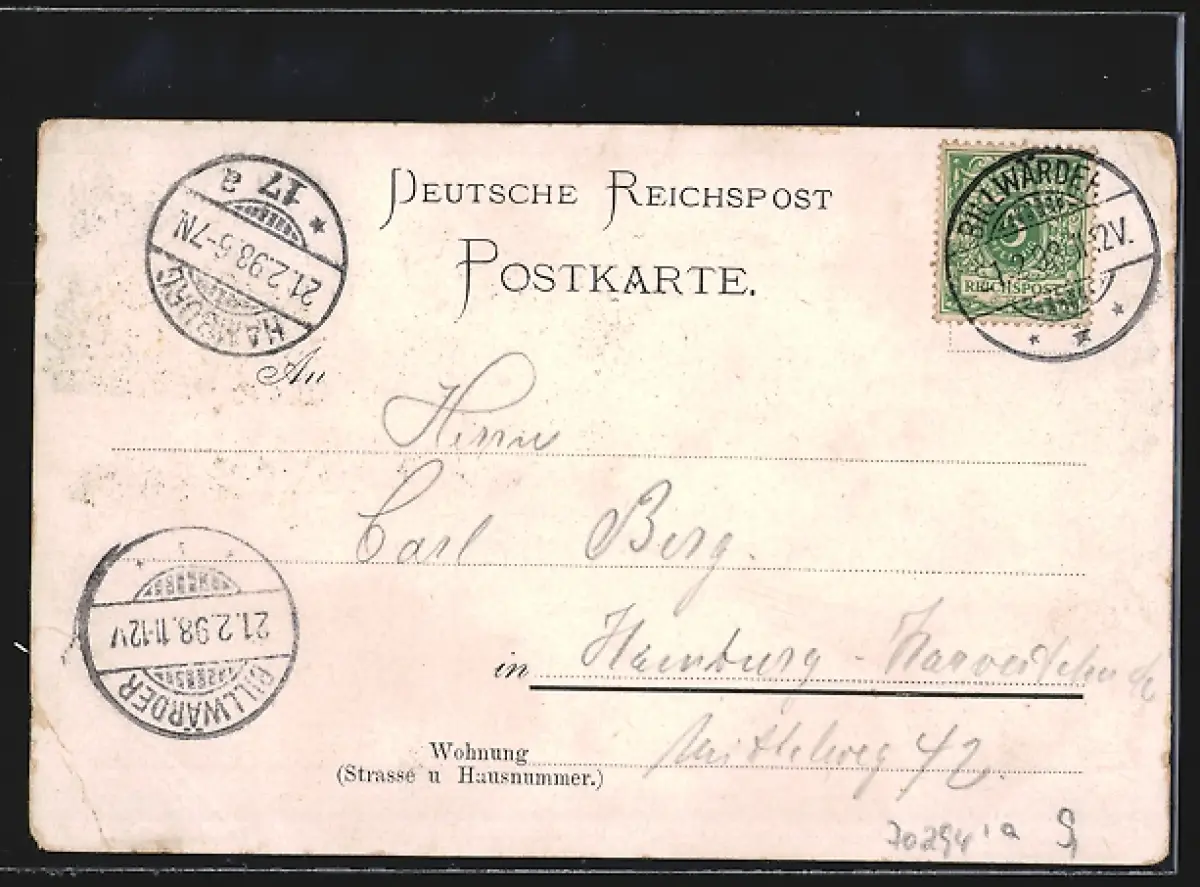 DEUTSCHE REICHSPOST
POSTKARTE.
17 a
21.2.98.6-7N
HAMBURG
BILLWÄRDER
21.2.98.11-12V.
5
REICHSPOST
An
Herrn
Carl Berg.
BILLWÄRDER
21.2.98.11-12V
in Hamburg -
Wohnung Mittelweg 42.
(Strasse u Hausnummer.)
70294 a